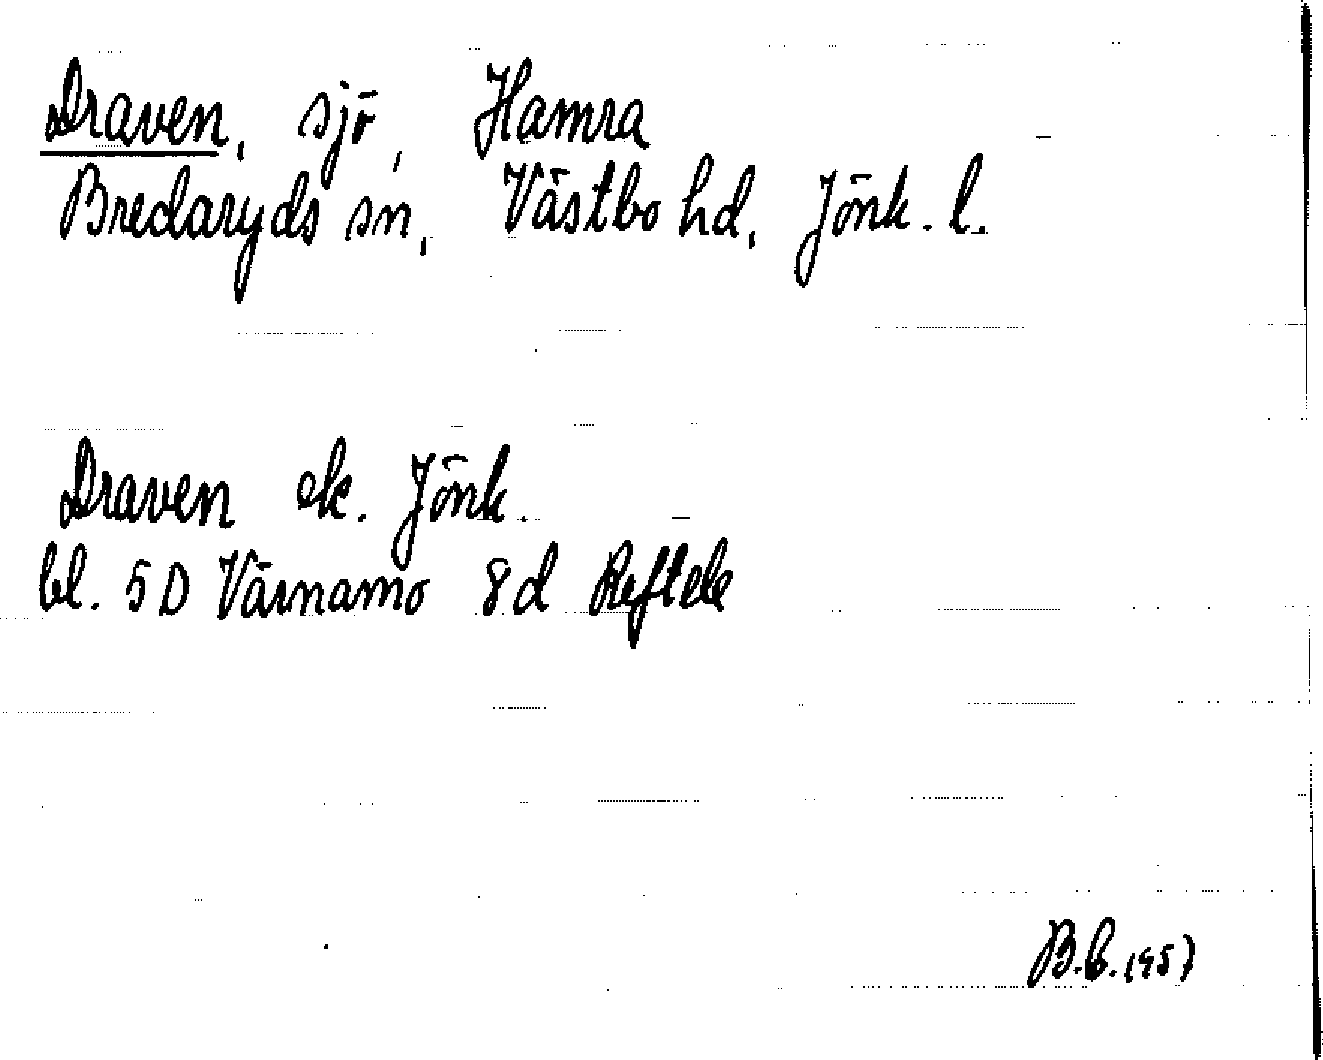 Draven, sjö, Hamra
Bredaryds sn, Västbo hd, Jönk. l.
Draven ek. Jönk.
bl. 5D Värnamo 8d Reftele
B.b. 1957